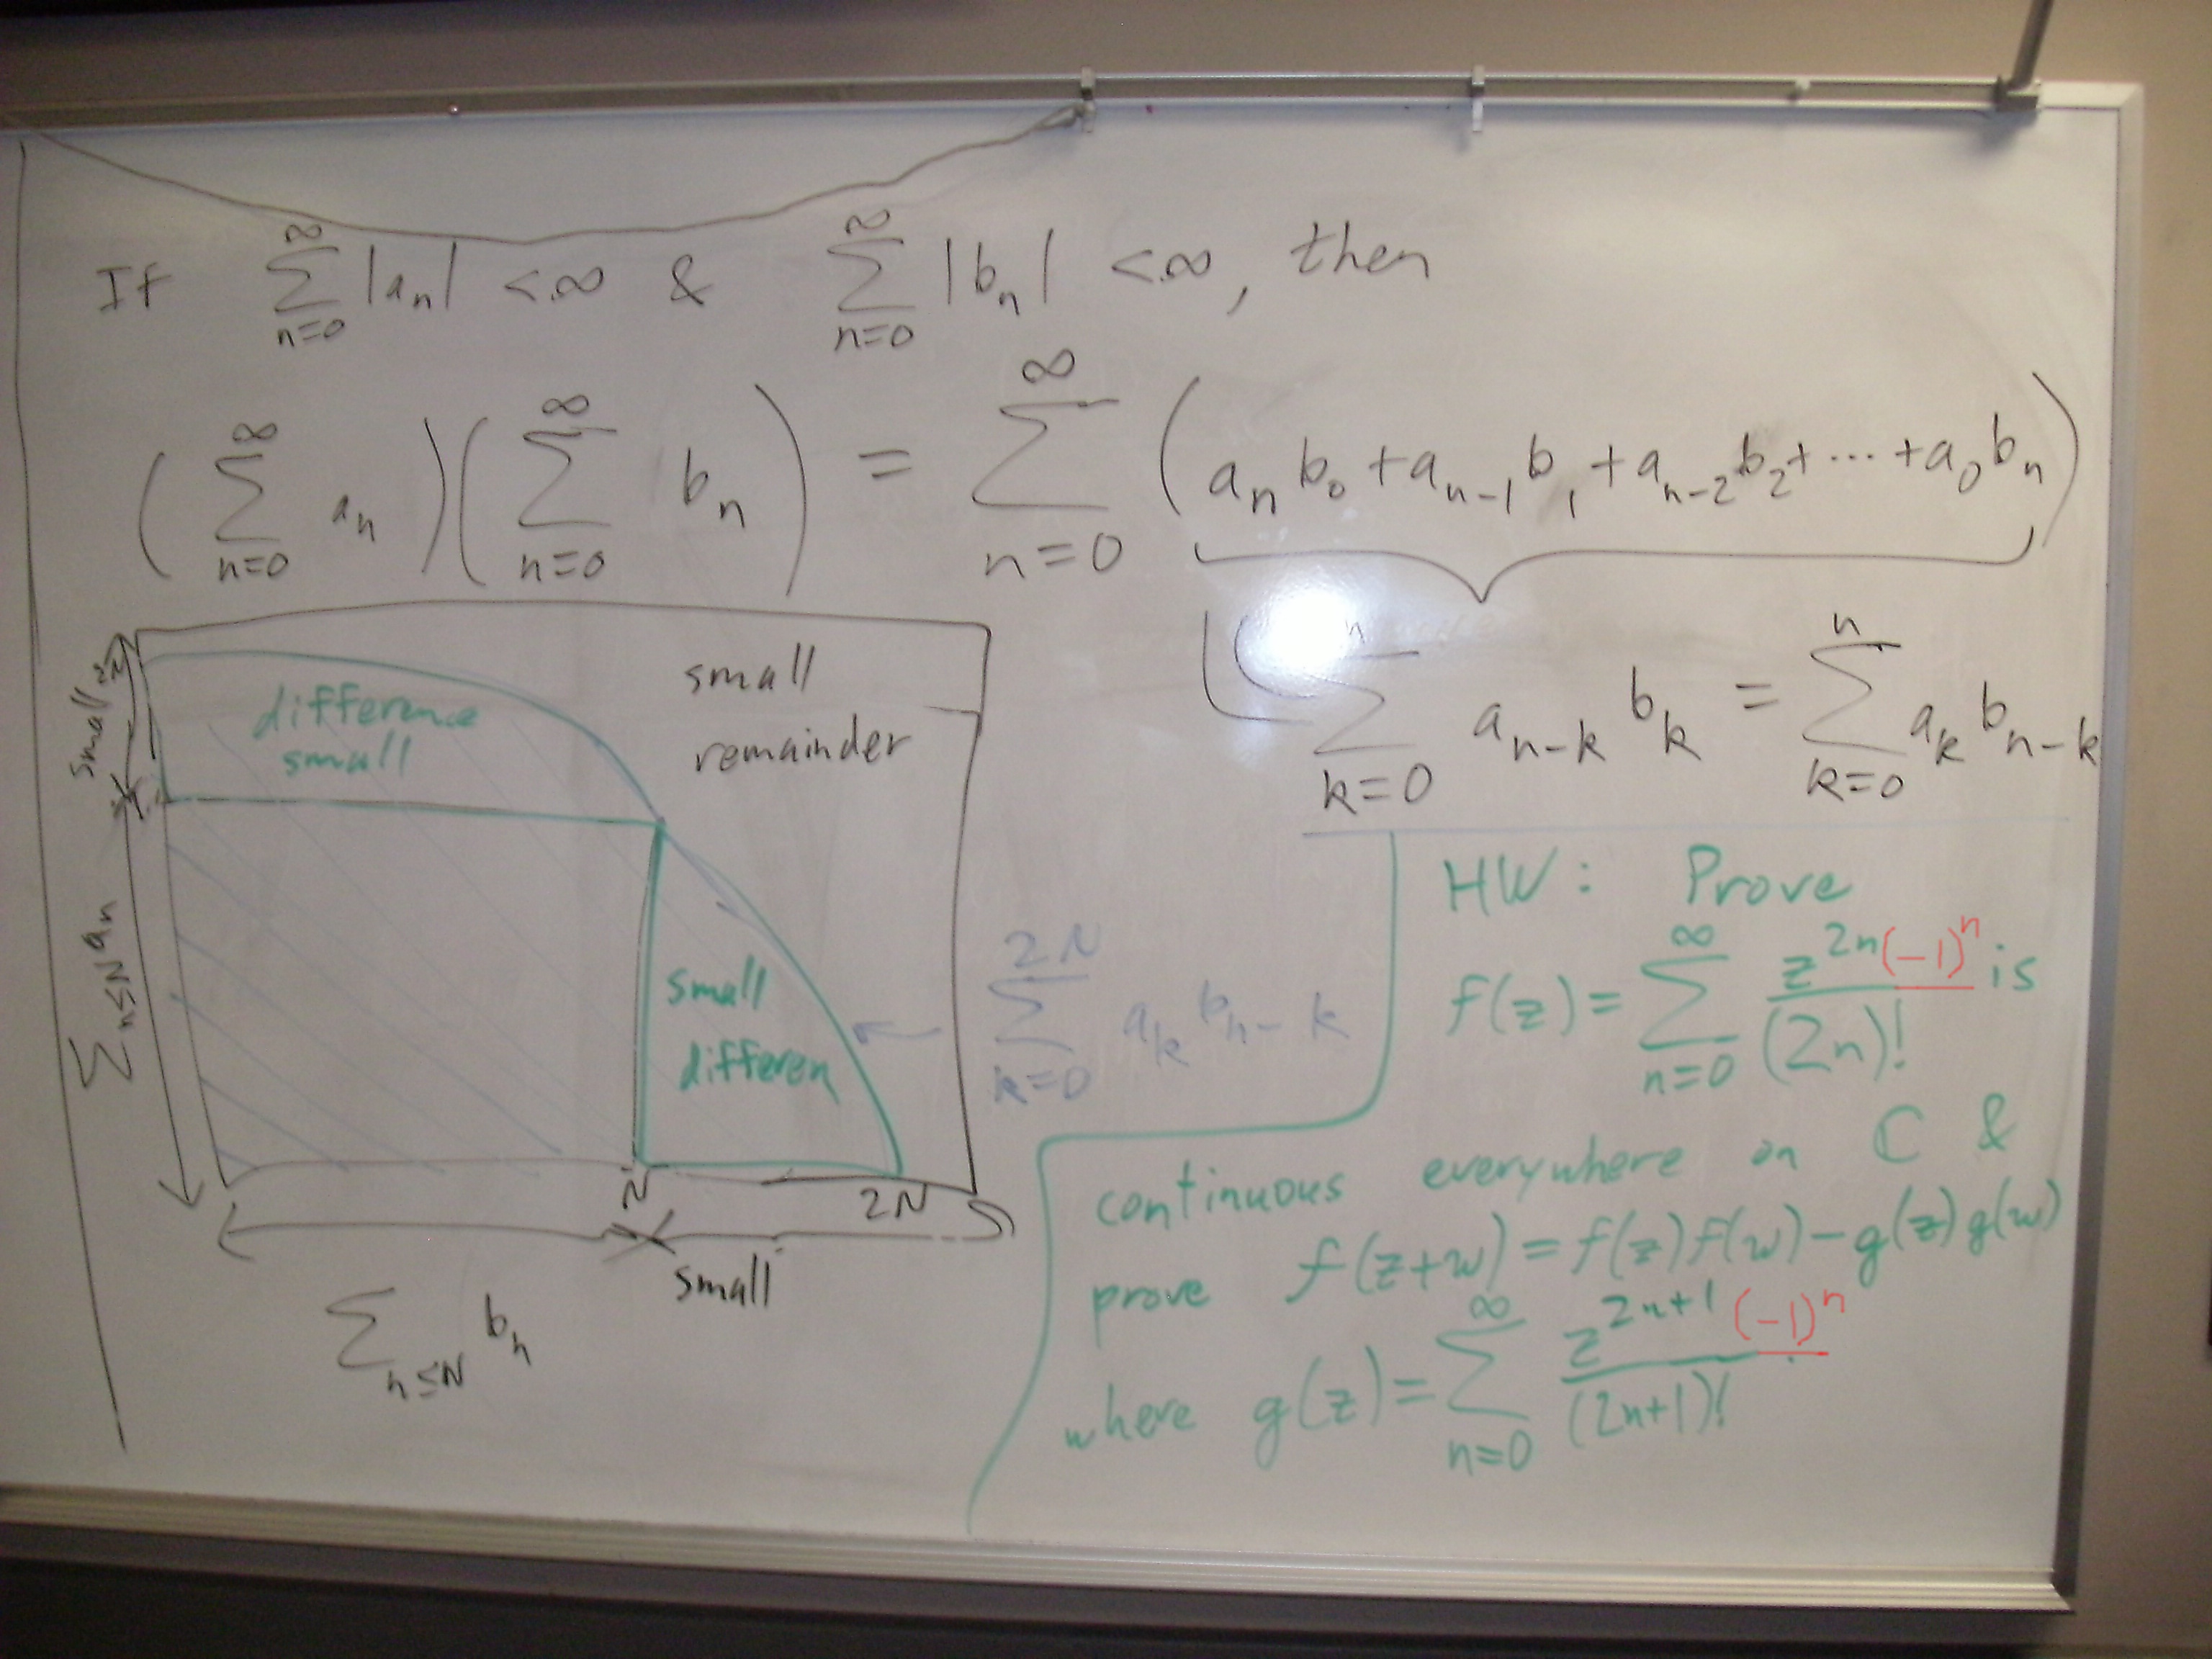 If ∑_{n=0}^{∞} |a_n| < ∞ & ∑_{n=0}^{∞} |b_n| < ∞, then
(∑_{n=0}^{∞} a_n)(∑_{n=0}^{∞} b_n) = ∑_{n=0}^{∞} (a_n b_0 + a_{n-1} b_1 + a_{n-2} b_2 + ⋯ + a_0 b_n)
∑_{k=0}^{n} a_{n-k} b_k = ∑_{k=0}^{n} a_k b_{n-k}
small
2N
difference
small
small
remainder
N
∑_{n≤N} a_n
small
differen
∑_{k=0}^{2N} a_k b_{n-k}
N
2N
small
∑_{n≤N} b_n
HW: Prove
f(z) = ∑_{n=0}^{∞} z^{2n} (-1)^n / (2n)! is
continuous everywhere on ℂ &
prove f(z+w) = f(z)f(w) - g(z)g(w)
where g(z) = ∑_{n=0}^{∞} z^{2n+1} (-1)^n / (2n+1)!